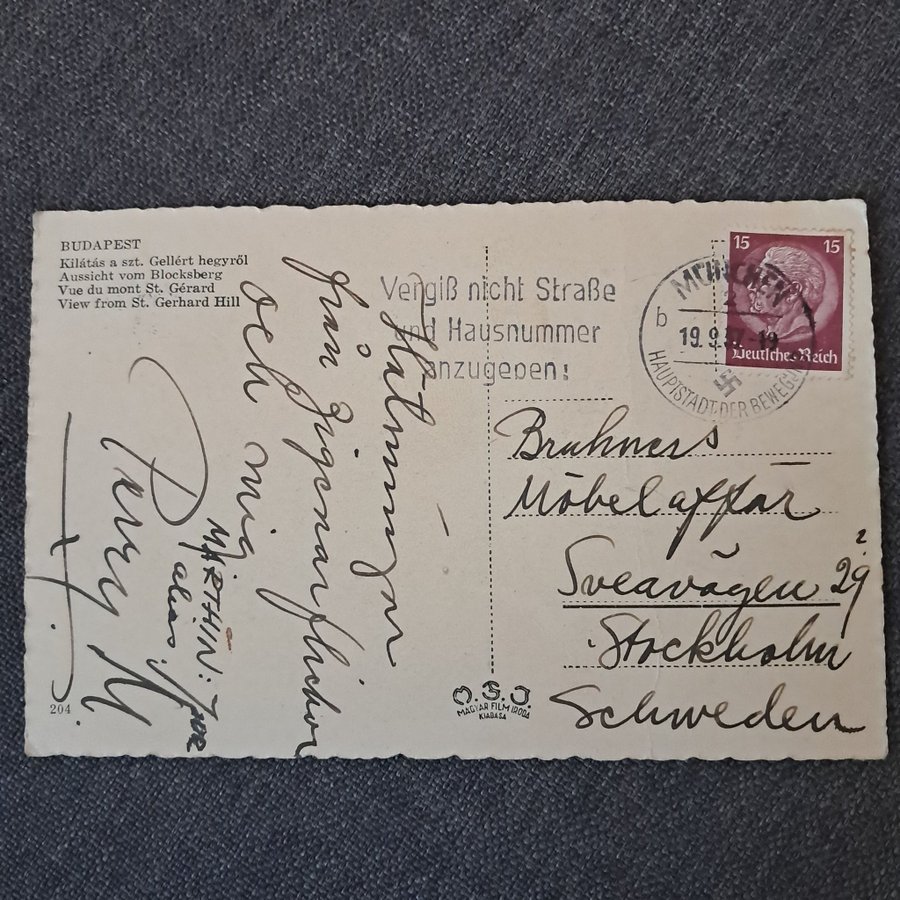 BUDAPEST
Kilátás a szt. Gellért hegyről
Aussicht vom Blocksberg
Vue du mont St. Gérard
View from St. Gerhard Hill
Hälsningar
från Zigenarflickor
och mig
Perry M
MARTHIN:
alias
204
Vergiß nicht Straße
und Hausnummer
anzugeben!
MÜNCHEN
2
b
19.9.37.-19
HAUPTSTADT DER BEWEGUNG
15 15
Deutsches Reich
Bruhners
Möbelaffär
Sveavägen 29
?
Stockholm
Schweden
MAGYAR FILM IRODA
KIADÁSA